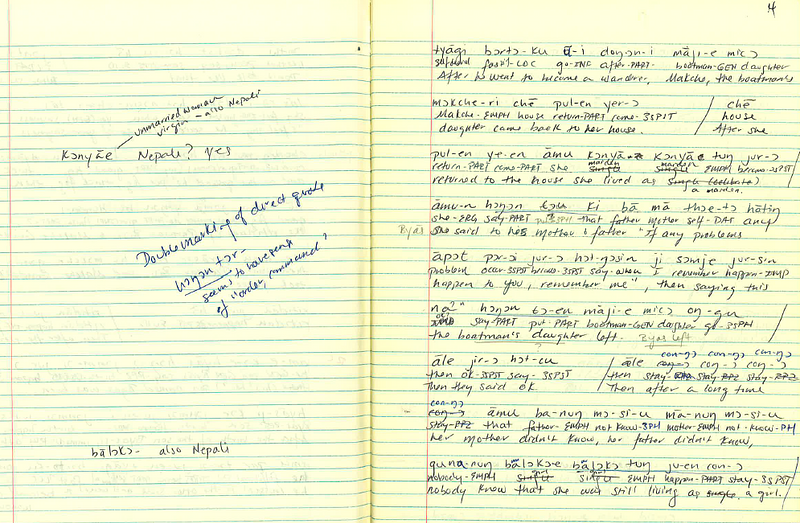 unmarried woman
virgin - also Nepali
kɔnyāe Nepali? yes
Double marking of direct quote
hɔŋɔn tɔr-
seems to have sense
of "order, command"?
bālɔkɔ- also Nepali
4
tyāgi bɔrtɔ-ku
-LOC go-INC after-PART boatman-GEN daughter
After he went to become a wanderer, Makche, the boatman's
mɔkche-ri chē pul-en yer-ɔ / chē
Makche-EMPH house return-PART come-3SPST / house
daughter came back to her house. / After she
pul-en ye-en āmu kɔnyāe tuŋ jur-ɔ
return-PART come-PART she maiden EMPH become-3SPST
returned to the house she lived as a maiden.
āmu-n hɔŋɔn tɔu ki bā mā thɔe-tɔ hātiŋ
she-ERG say-PART put-3SPH that father mother self-DAT any
she said to her mother & father "If any problems
Byās
āpɔt pɔ-ɔ jur-ɔ hɔt-gɔsin ji sɔmje jur-sin
problem occur-3SPST become-3SPST say-when I remember happen-IMP
happen to you, remember me", then saying this
na" hɔŋɔn tɔ-en māji-e micɔ oŋ-gu
say-PART put-PART boatman-GEN daughter go-3SPH
the boatman's daughter left. Byas left
āle jir-ɔ hɔt-cu / āle con-ɔ con-ɔ
con-ŋɔ con-ŋɔ con-ŋɔ
then OK-3SPST say-3SPST / then stay- stay- stay-
Then they said OK. / Then after a long time
con-ŋɔ
āmu ba-nuŋ mɔ-si-u mā-nuŋ mɔ-si-u
that father-EMPH not know-3PH mother-EMPH not-know-PH
her mother didn't know, her father didn't know,
guna-nuŋ bālɔkɔe bālɔkɔ tuŋ ju-en con-ɔ
nobody-EMPH girl girl EMPH happen-PART stay-3SPST
nobody knew that she was still living as a girl.